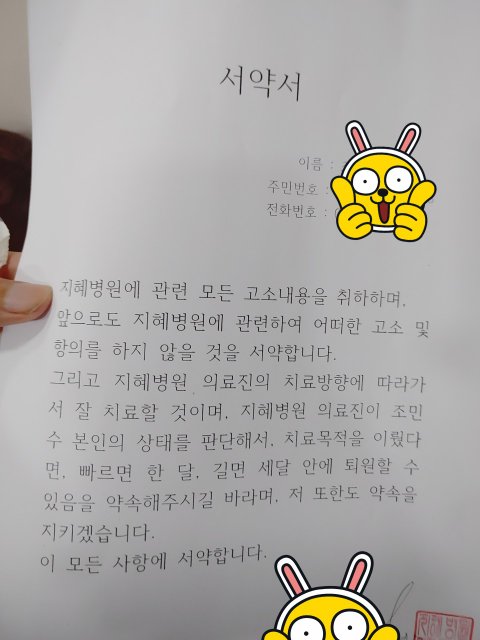 서약서
이름 :
주민번호 :
전화번호 :
지혜병원에 관련 모든 고소내용을 취하하며,
앞으로도 지혜병원에 관련하여 어떠한 고소 및
항의를 하지 않을 것을 서약합니다.
그리고 지혜병원 의료진의 치료방향에 따라가
서 잘 치료할 것이며, 지혜병원 의료진이 조민
수 본인의 상태를 판단해서, 치료목적을 이뤘다
면, 빠르면 한 달, 길면 세달 안에 퇴원할 수
있음을 약속해주시길 바라며, 저 또한도 약속을
지키겠습니다.
이 모든 사항에 서약합니다.